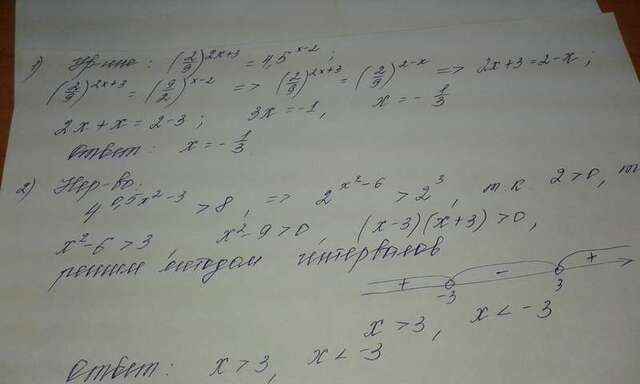 1) Ур-ние: (2/9)^(2x+3) = 4,5^(x-2);
(2/9)^(2x+3) = (9/2)^(x-2) => (2/9)^(2x+3) = (2/9)^(2-x) => 2x+3=2-x;
2x+x=2-3; 3x=-1, x=-1/3
Ответ: x=-1/3
2) Нер-во:
4^(0,5x²-3) > 8, => 2^(x²-6) > 2³, т.к. 2>0, т
x²-6>3, x²-9>0, (x-3)(x+3)>0,
решим методом интервалов
+ - +
-3 3
x>3, x<-3
Ответ: x>3, x<-3